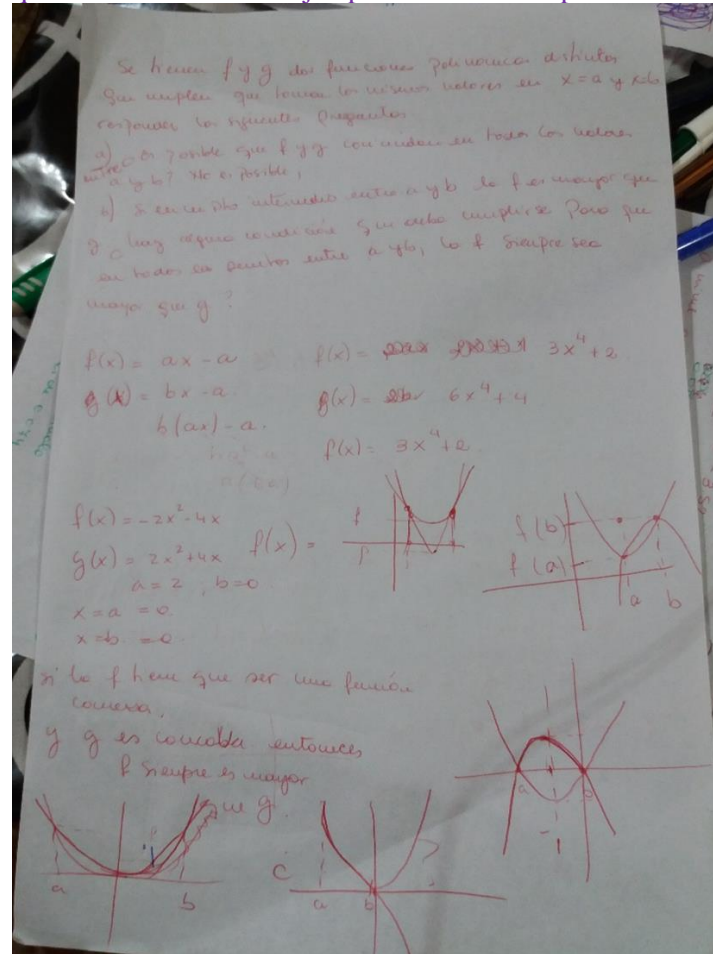 Se tienen f y g dos funciones polinómicas distintas
que cumplen que toman los mismos valores en x=a y x=b
responder las siguientes preguntas
a) es posible que f y g coincidan en todos los valores
entre a y b? No es posible,
b) Si en un sitio intermedio entre a y b la f es mayor que
g, hay alguna condición que deba cumplirse para que
en todos los puntos entre a y b, la f siempre sea
mayor que g?
f(x) = ax - a
f(x) = 3x⁴ + 2
g(x) = bx - a.
g(x) = 6x⁴ + 4
b(ax) - a.
f(x) = 3x⁴ + 2
f(x) = -2x² - 4x
f(x) =
g(x) = 2x² + 4x
a = 2 , b = 0
x = a = 0.
x = b = 0
f(b)
f(a)
a b
si la f tiene que ser una función
convexa.
y g es concava entonces
f siempre es mayor
que g.
a
a b
c a b ?